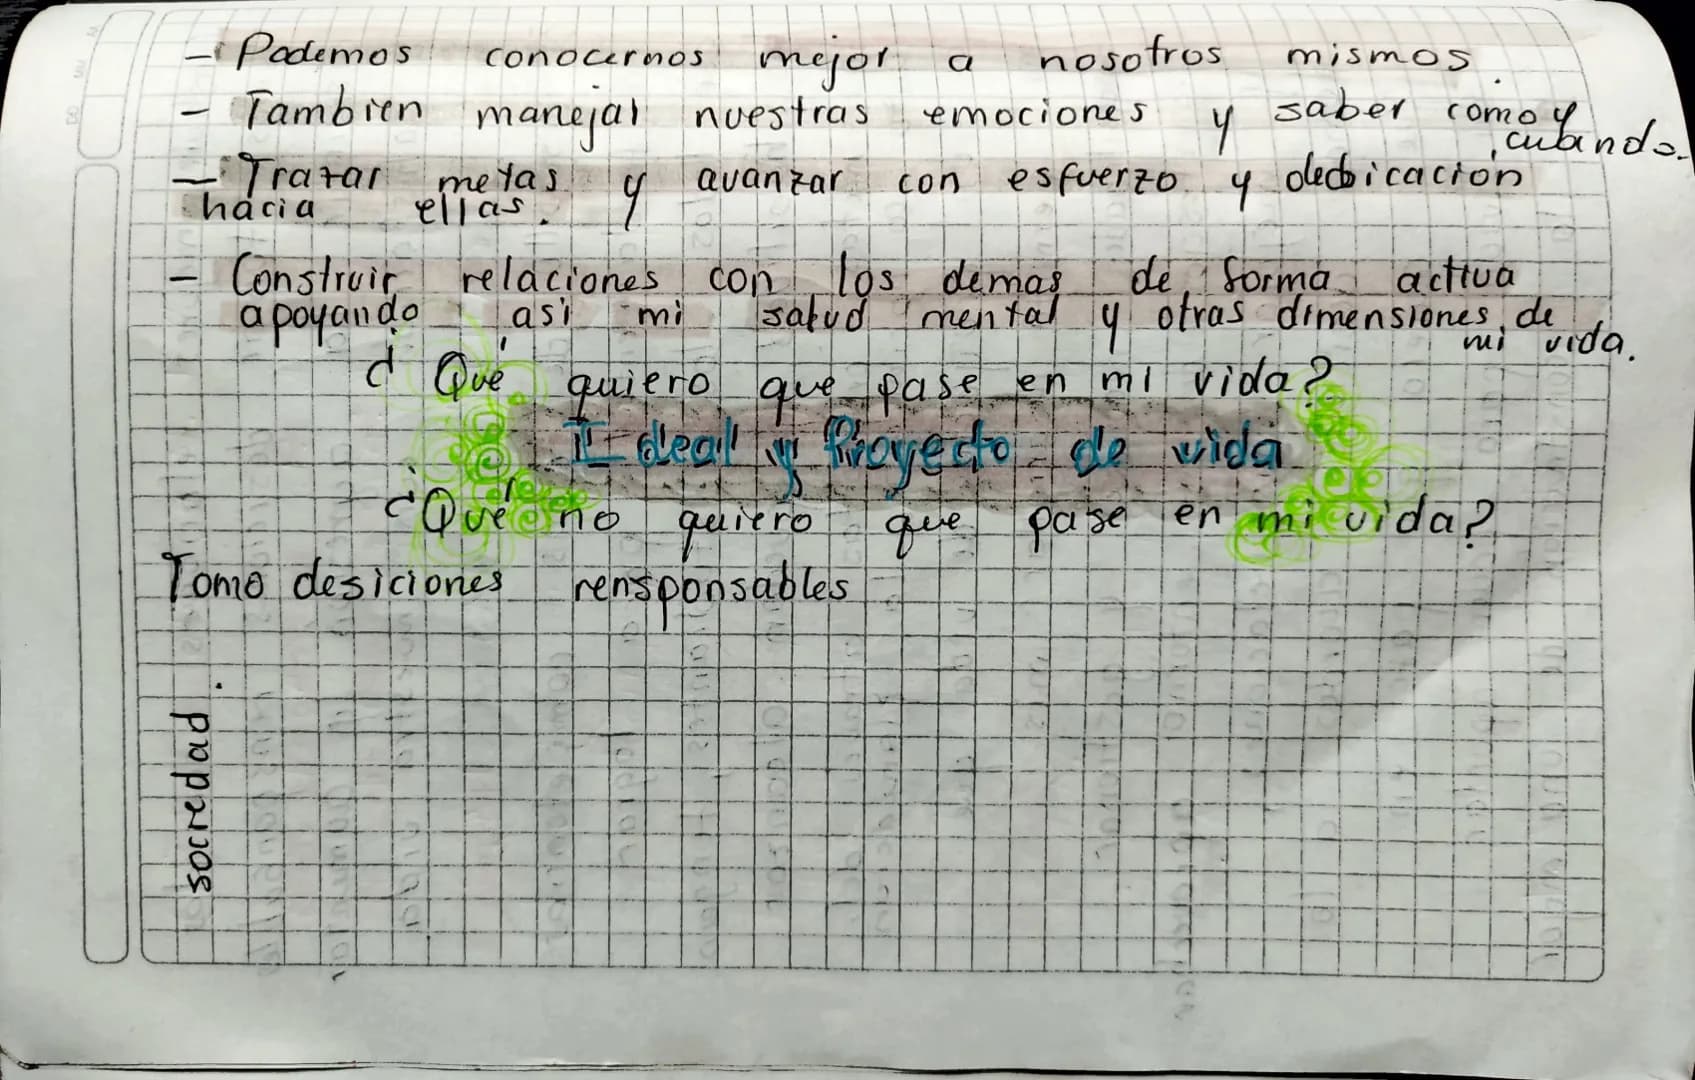 - Podemos conocernos mejor a nosotros mismos.
- Tambien manejar nuestras emociones y saber como y cuando.
- Trazar metas y avanzar con esfuerzo y dedicación
hacia ellas.
- Construir relaciones con los demas de forma activa
apoyando asi mi salud mental y otras dimensiones de
mi vida.
¿Qué quiero que pase en mi vida?
Ideal y Proyecto de vida
¿Qué no quiero que pase en mi vida?
Tomo desiciones rensponsables
socredad